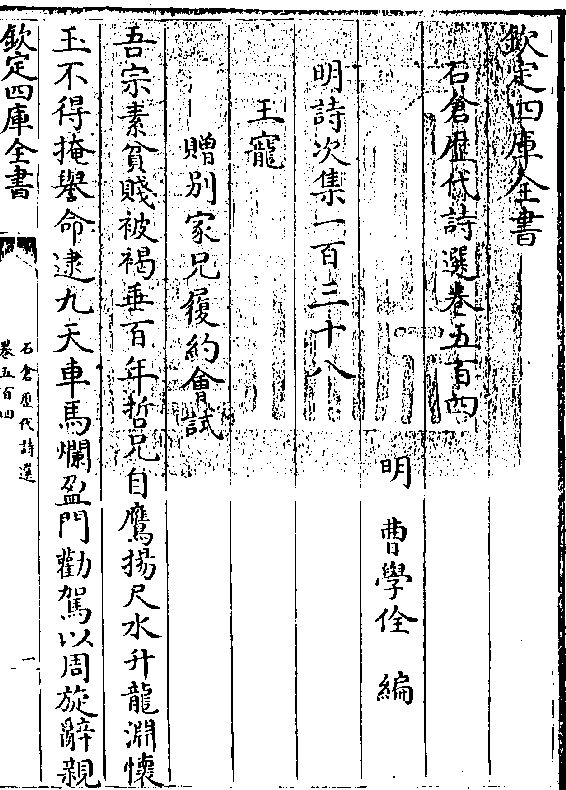 欽定四庫全書
石倉歴代詩選卷五百四
明 曹學佺 編
明詩次集一百三十八
王寵
贈別家兄履約會試
吾宗素貧賤被褐垂百年哲兄自鷹揚尺水升龍淵懐
玉不得掩譽命逮九天車馬爛盈門勸駕以周旋辭親
欽定四庫全書
石倉歴代詩選
卷五百四
一